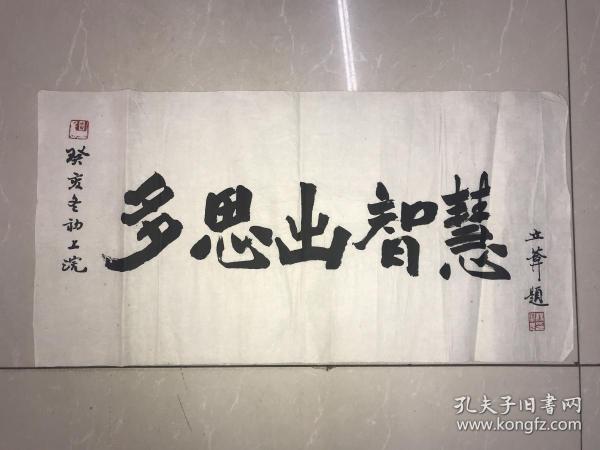 癸亥冬初上浣
多思出智慧
立華題
孔夫子旧書网
www.kongfz.com